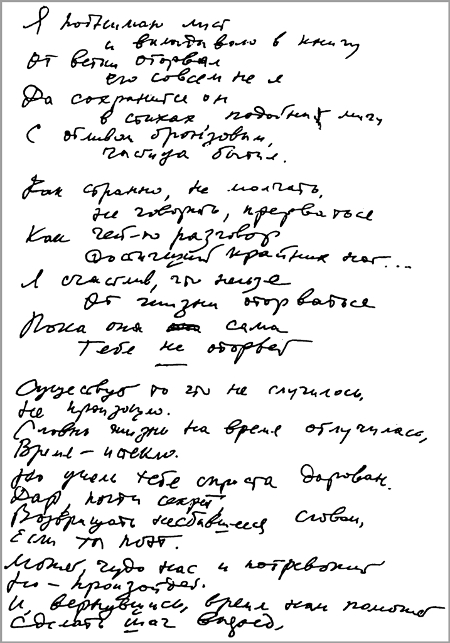 Я поднимаю лист
и вкладываю в книгу
От ветки оторвал
его совсем не я
Да сохранится он
в стихах, подобный мигу
С отливом бронзовым,
частица бытия.
Как странно, не молчать,
не говорить, прерваться
Как чей-то разговор
Достигший крайних нот...
Я счастлив, что нельзя
От жизни оторваться
Пока она сама
Тебя не оторвет
Существуб то что не случилось,
Не произошло.
Словно жизнь на время отлучилась,
Время – истекло.
Но умел тебе спроста дарован.
Дар, почти секрет
Возвращать несбывшееся словом,
Если ты поэт.
Может, чудо нас и потревожит
Но – произойдет.
И, вернувшись, время нам поможет
Сделать шаг вперед.